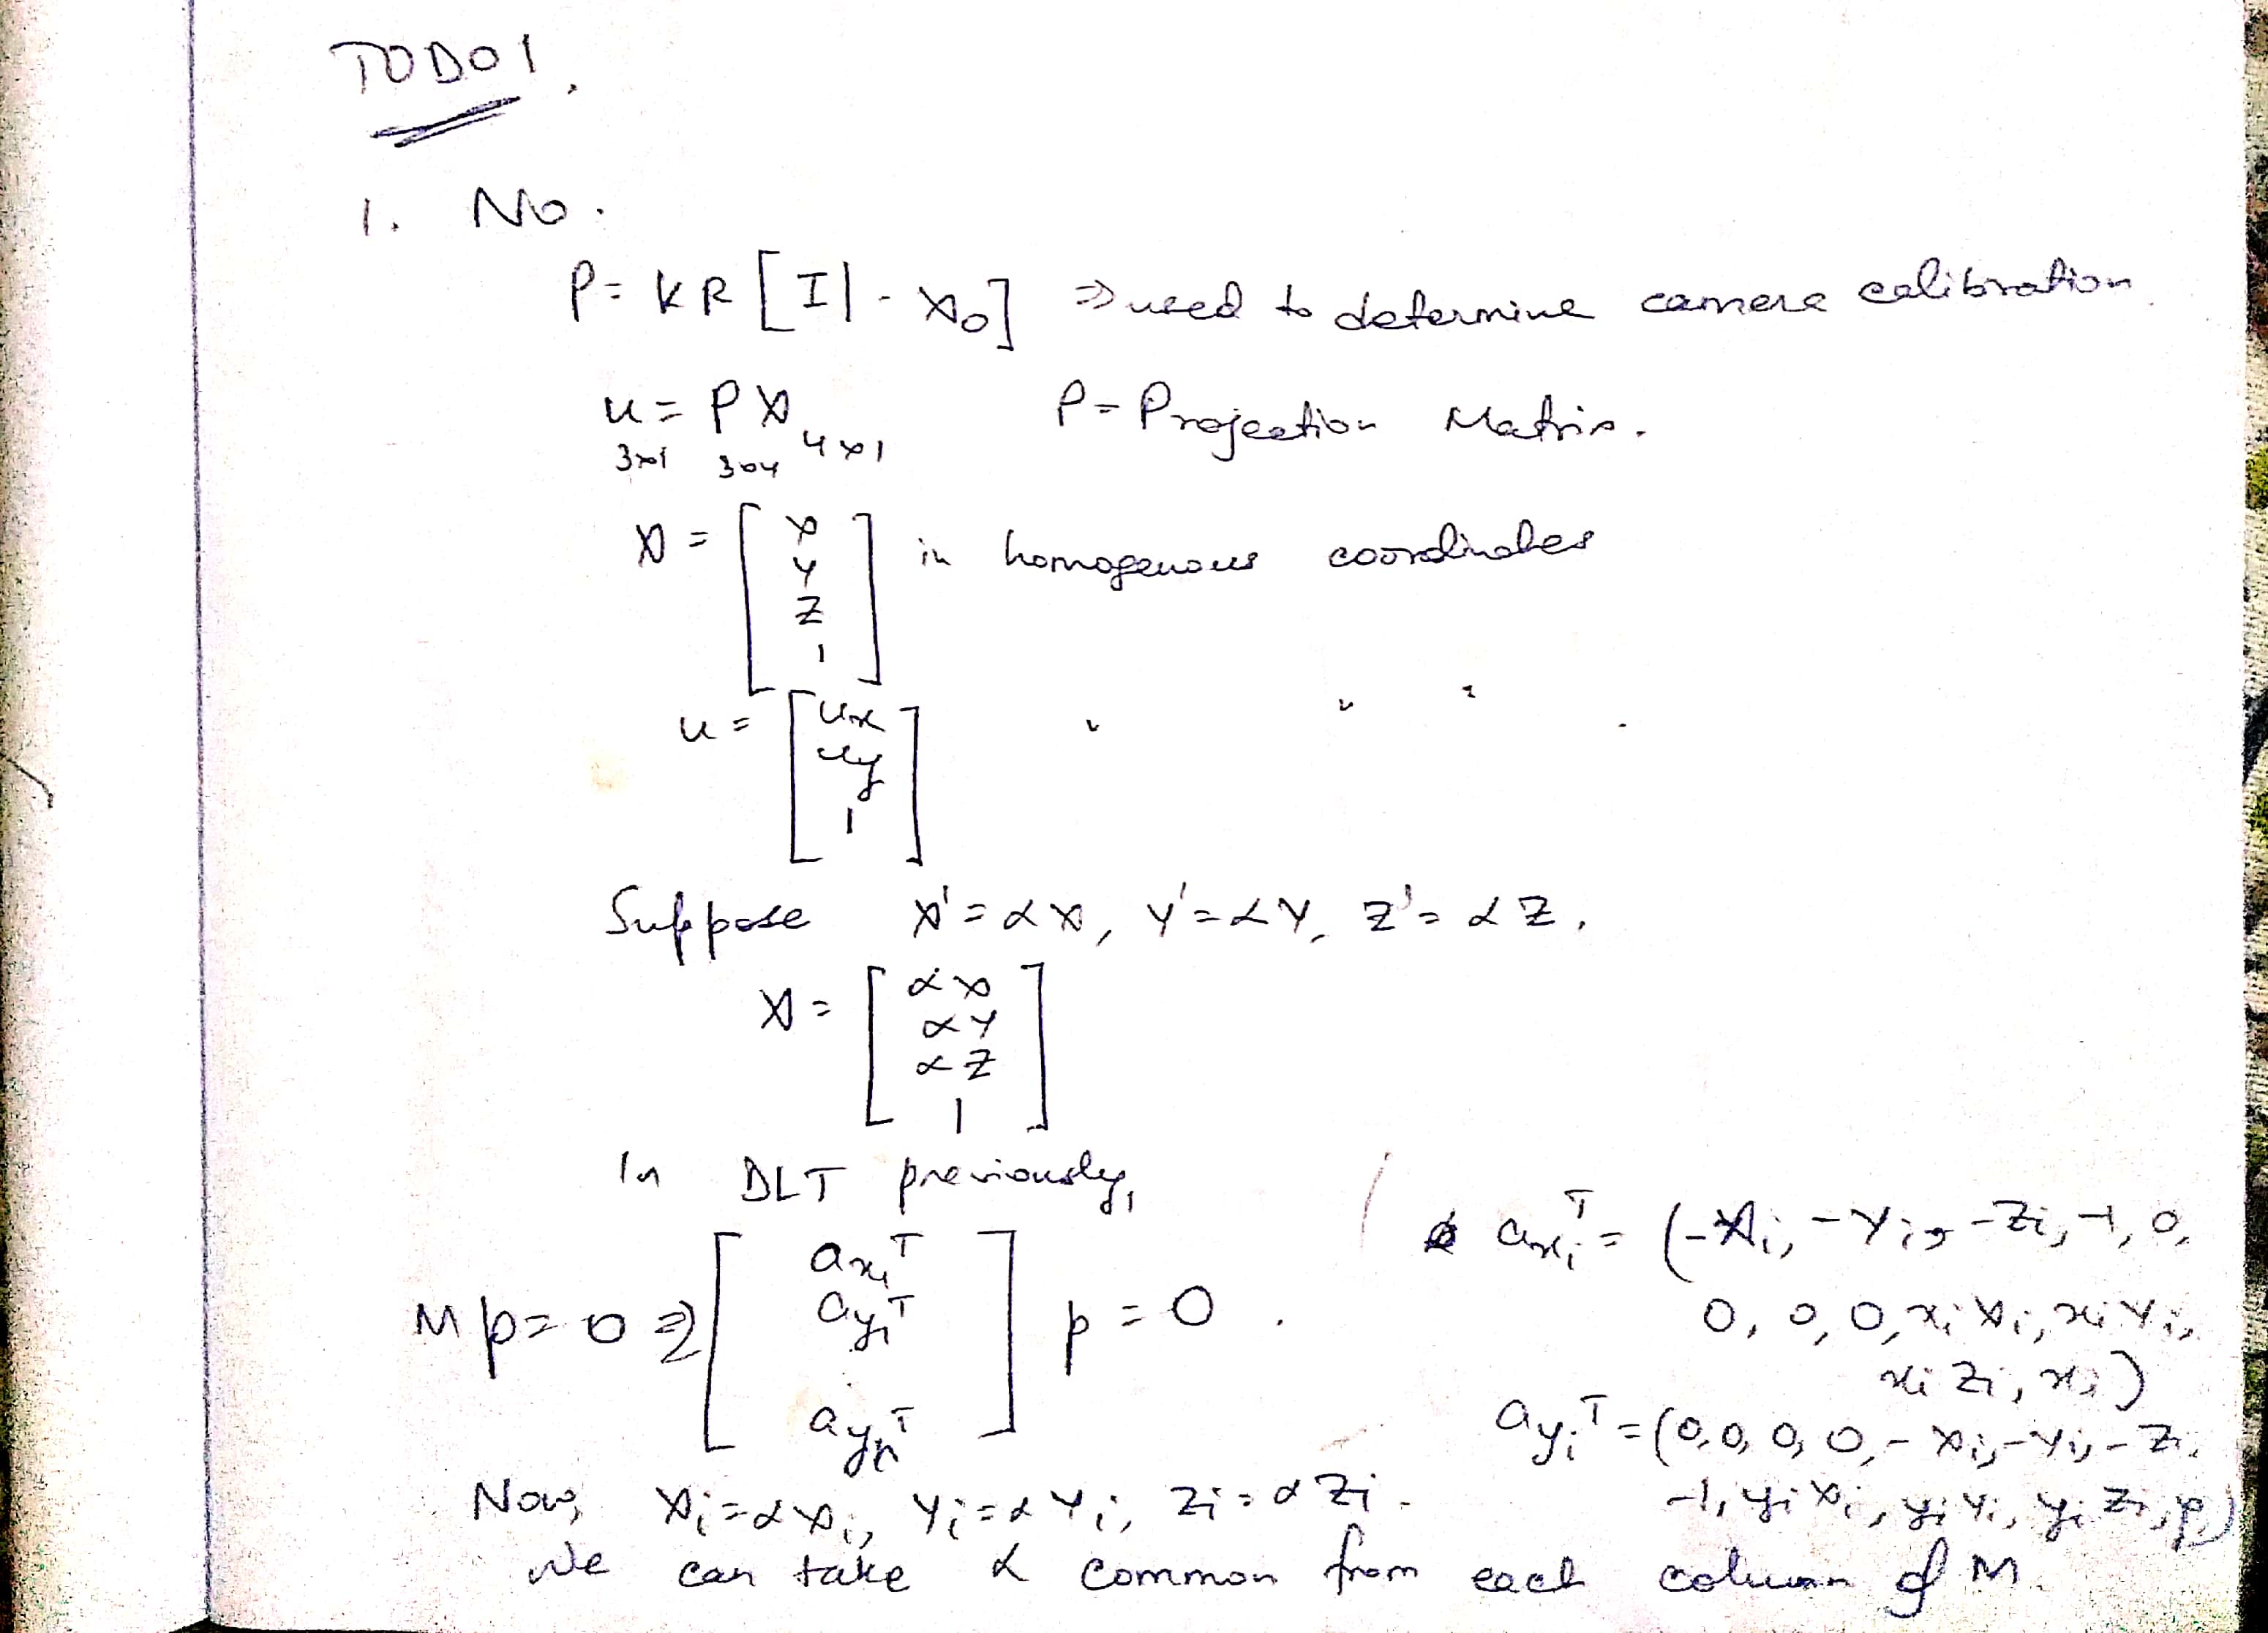 TODO 1.
1. No.
P = KR [I | - X0] ⇒ used to determine camera calibration.
u = P X P = Projection Matrix.
3x1 3x4 4x1
X = [ X Y Z 1 ] in homogenous coordinates
u = [ ux uy 1 ] " " " .
Suppose X' = αX, Y' = αY, Z' = αZ.
X = [ αX αY αZ 1 ]
In DLT previously,
Mp = 0 ⇒ [ axiT ayiT . aynT ] p = 0 .
axiT = (-Xi, -Yi, -Zi, -1, 0,
0, 0, 0, xiXi, xiYi,
xiZi, xi)
ayiT = (0, 0, 0, 0, -Xi, -Yi, -Zi,
-1, yiXi, yiYi, yiZi, yi)
Now, Xi = αXi, Yi = αYi, Zi = αZi.
We can take α common from each column of M.